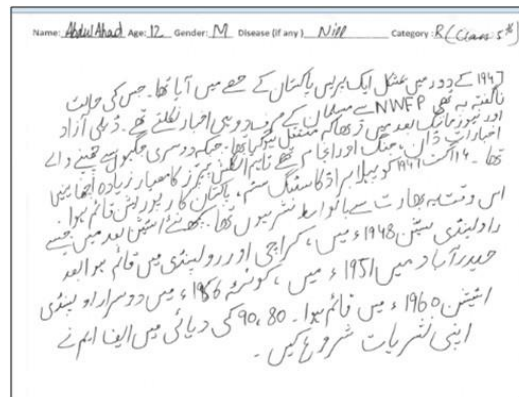 Name: Abdul Ahad Age: 12 Gender: M Disease (if any) Nill Category: R (Class 5th)
1947 کے دور میں مشکل ایک پریس پاکستان کے حصے میں آیا تھا۔ جس کی حالت
ناگفتہ بہ تھی NWFP سے مسلمان کے صرف دو ہی اخبار نکلتے تھے۔ ڈیلی آزاد
اور نیوز بعد میں ڈھاکہ منتقل ہوگیا تھا۔ جبکہ دوسری جگہوں سے چھپنے والے
اخبارات ڈان، جنگ اور انجام تھے تاہم انگلش پیپرز کا معیار زیادہ اچھا نہیں
تھا۔ 14 اگست 1947 کو پہلا براڈ کاسٹنگ سسٹم، پاکستان کارپوریشن قائم ہوا۔
اس وقت یہ بھارت سے نشر تھا۔ اسٹیشن بعد میں جیسے
راولپنڈی سٹیشن 1948ء میں، کراچی اور رولپنڈی میں قائم ہوا بعد
حیدرآباد میں 1951ء میں، کوئٹہ 1956ء میں دوسرا راولپنڈی
اسٹیشن 1960ء میں قائم ہوا۔ 80، 90 کی دہائی میں ایف ایم نے
اپنی نشریات شروع کیں۔